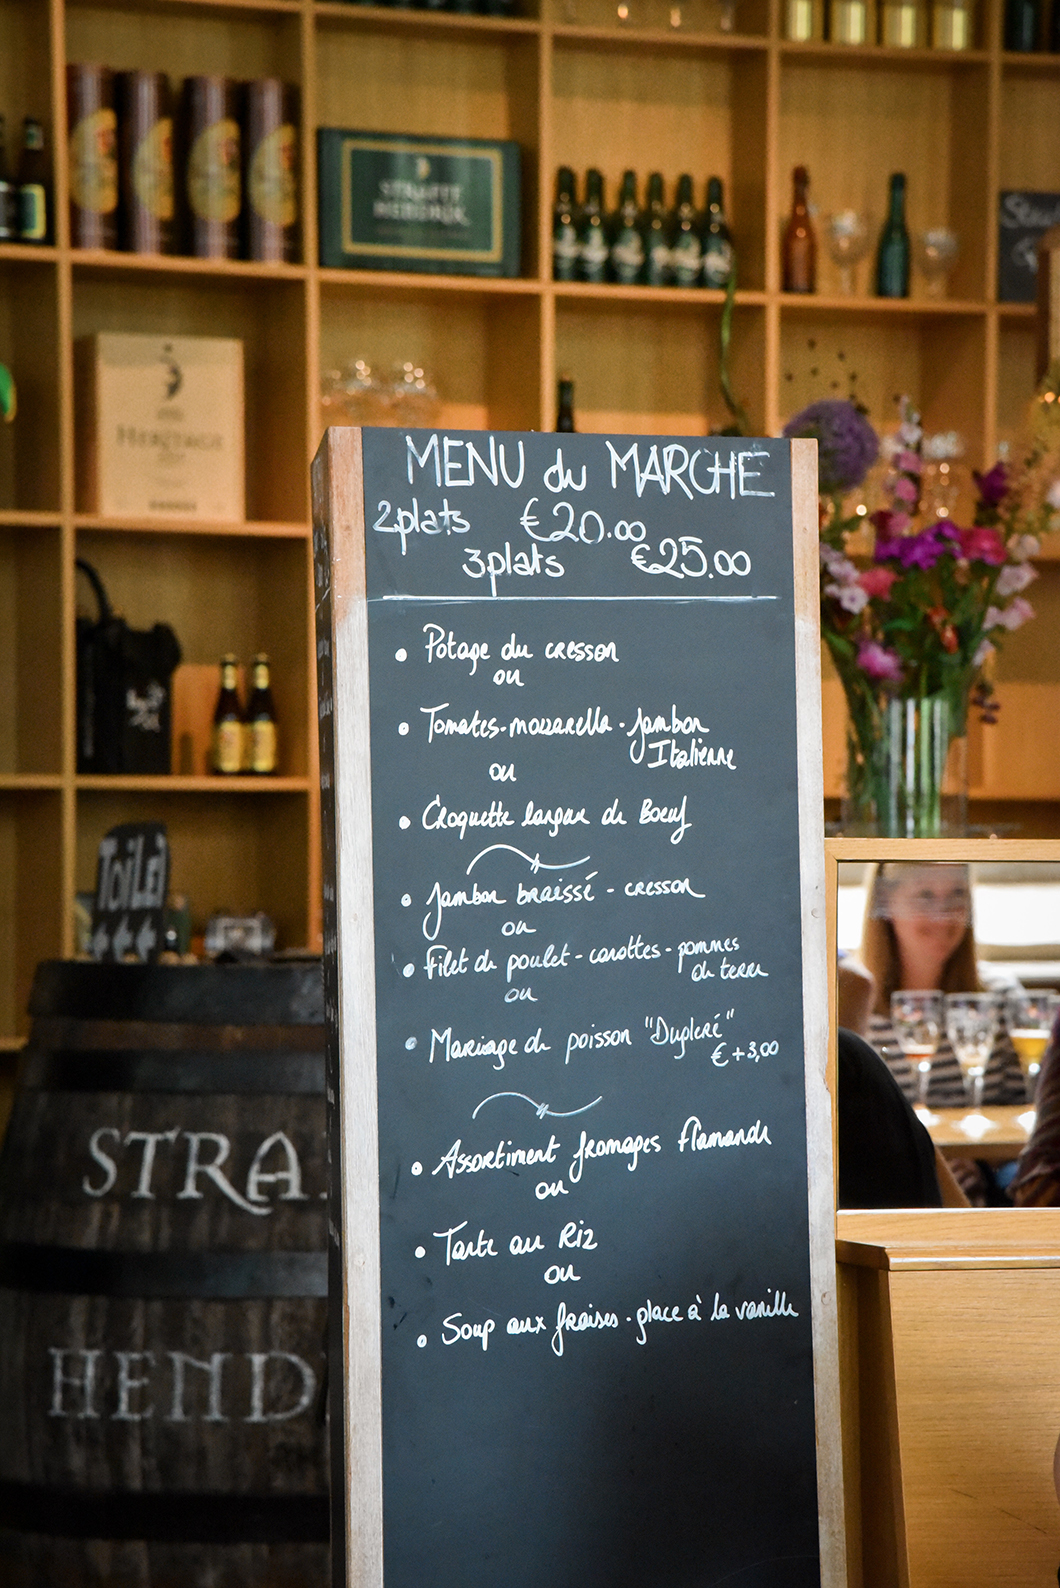 MENU du MARCHE
2plats €20.00
3plats €25.00
• Potage du cresson
ou
• Tomates-mozzarella-jambon
Italienne
ou
• Croquette langue de Boeuf
• Jambon braissé - cresson
ou
• Filet de poulet - carottes - pommes
de terre
ou
• Mariage de poisson "Dupleré"
€+3,00
• Assortiment fromages flamande
ou
• Tarte au Riz
ou
• Soup aux fraises - glace à la vanille
STRAFFE
HENDRIK
HERITAGE
TOiLET
STRA
HEND